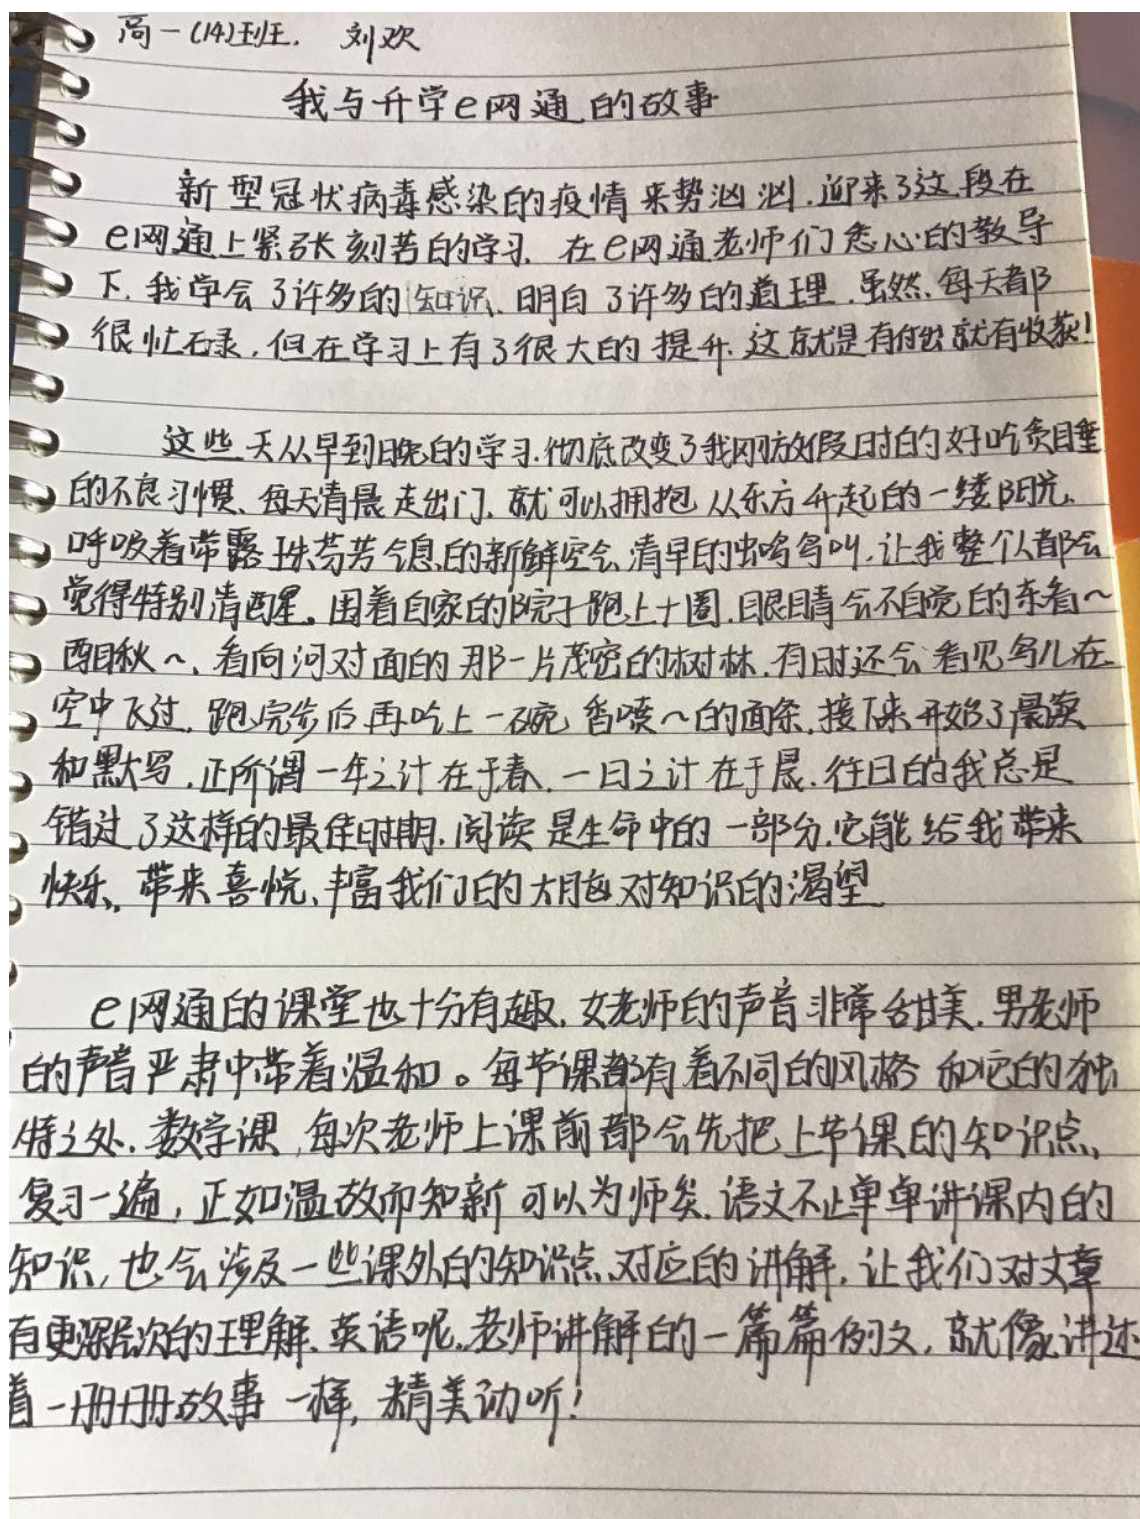 高一(14)班. 刘欢
我与升学e网通的故事
新型冠状病毒感染的疫情来势汹汹.迎来了这段在
e网通上紧张刻苦的学习.在e网通老师们悉心的教导
下.我学会了许多的知识、明白了许多的道理.虽然、每天都
很忙碌.但在学习上有了很大的提升.这就是有付出就有收获!
这些天从早到晚的学习.彻底改变了我刚放假时的好吃贪睡
的不良习惯、每天清晨走出门、就可以拥抱从东方升起的一缕阳光、
呼吸着带露珠芬芳气息的新鲜空气.清早的虫鸣鸟叫.让我整个人都会
觉得特别清醒。围着自家的院子跑上十圈.眼睛会不自觉的东看~
西瞅~、看向河对面的那一片茂密的树林.有时还会看见鸟儿在
空中飞过.跑完步后再吃上一碗香喷~的面条.接下来开始了晨读
和默写.正所谓一年之计在于春、一日之计在于晨.往日的我总是
错过了这样的最佳时期.阅读是生命中的一部分.它能给我带来
快乐、带来喜悦、丰富我们的大脑对知识的渴望
e网通的课堂也十分有趣.女老师的声音非常甜美.男老师
的声音严肃中带着温和。每节课都有着不同的风格和它的独
特之处.数学课,每次老师上课前都会先把上节课的知识点、
复习一遍,正如温故而知新可以为师矣.语文不止单单讲课内的
知识,也会涉及一些课外的知识点对应的讲解.让我们对文章
有更深层次的理解.英语呢、老师讲解的一篇篇例文.就像讲述
着一册册故事一样,精美动听!